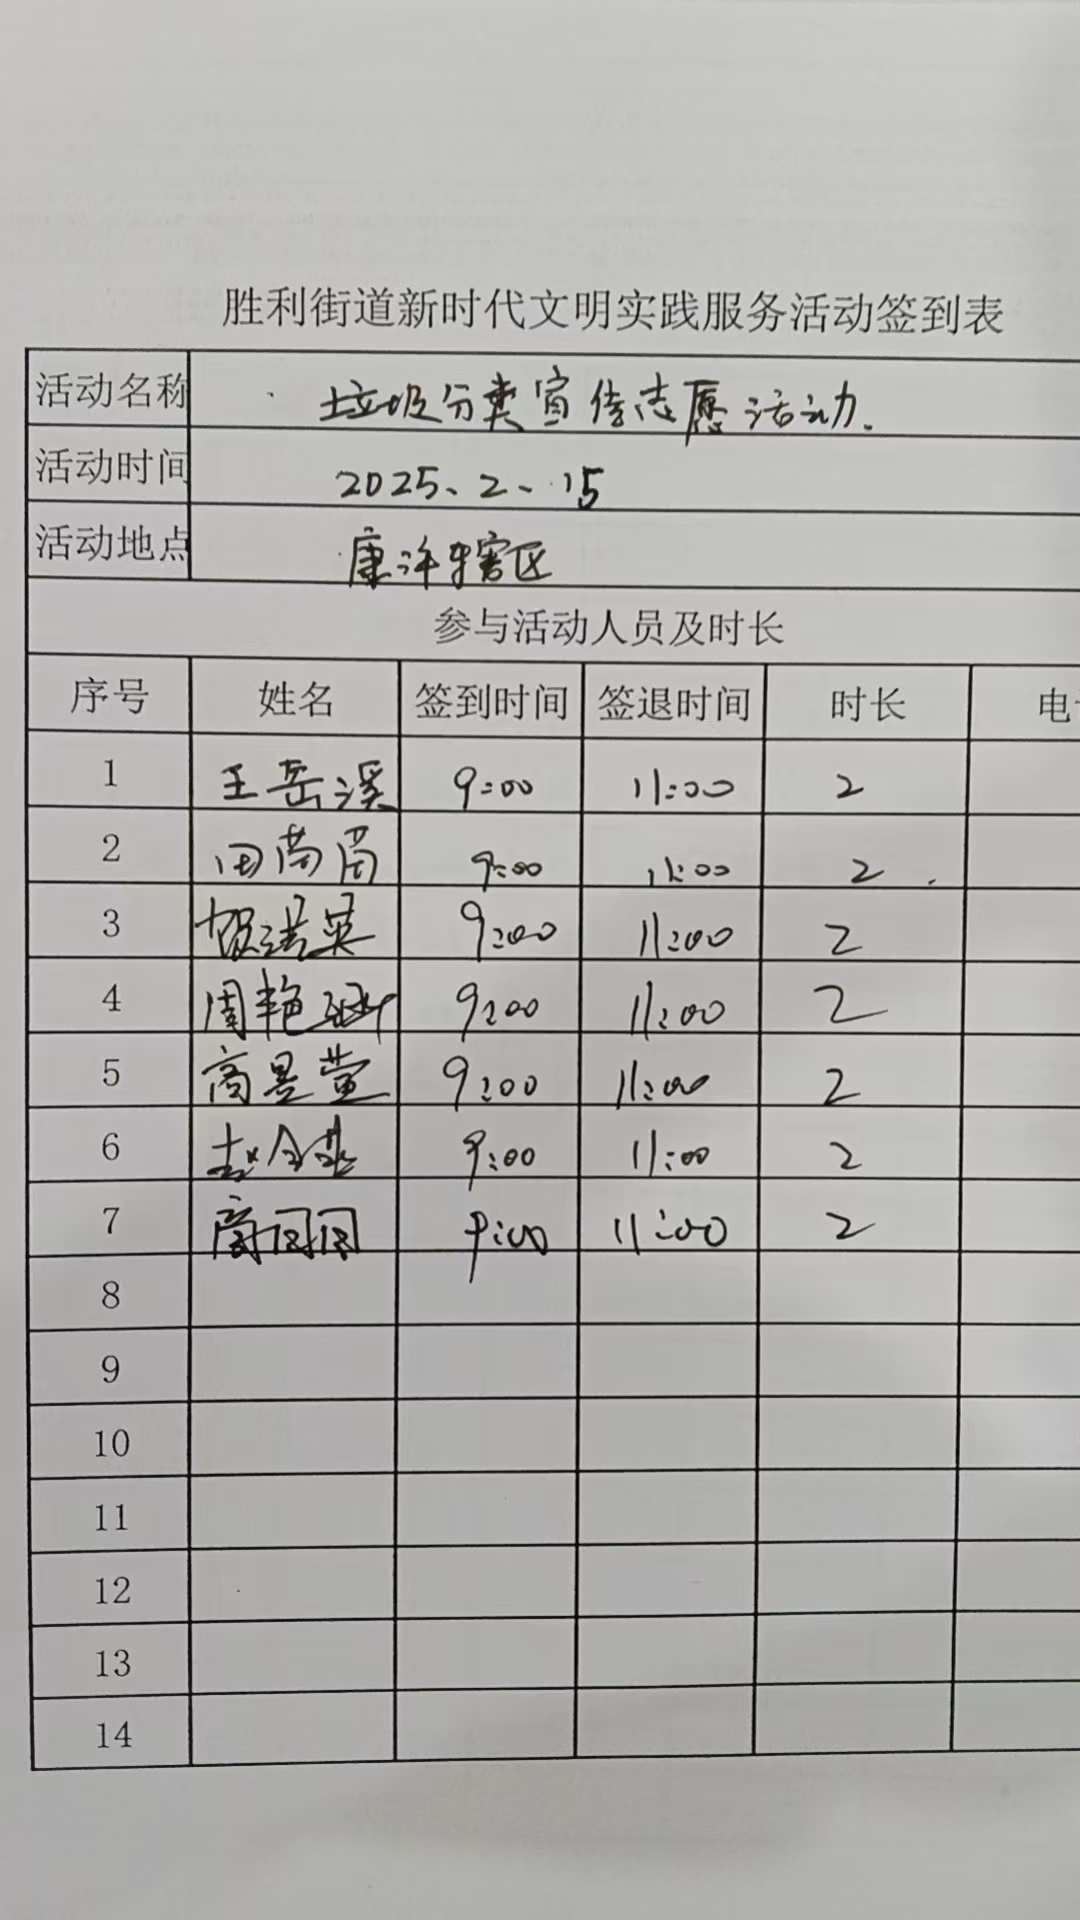 胜利街道新时代文明实践服务活动签到表
活动名称 垃圾分类宣传志愿活动.
活动时间 2025、2、15
活动地点 康洋辖区
参与活动人员及时长
序号 姓名 签到时间 签退时间 时长 电
1 王岳溪 9:00 11:00 2
2 田苗苗 9:00 11:00 2
3 贺洪英 9:00 11:00 2
4 周艳 9:00 11:00 2
5 高昱萱 9:00 11:00 2
6 赵 9:00 11:00 2
7 9:00 11:00 2
8
9
10
11
12
13
14